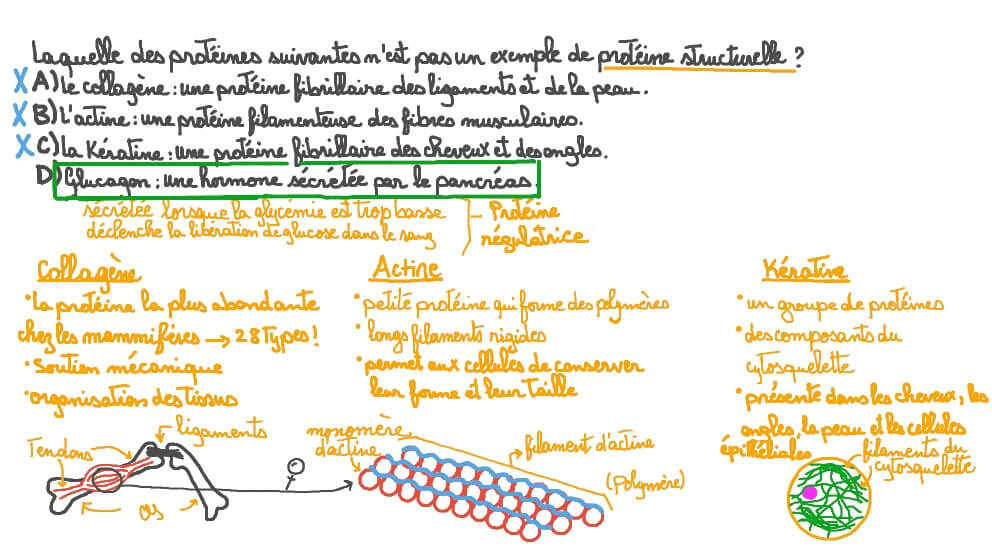 Laquelle des protéines suivantes n'est pas un exemple de protéine structurelle ?
X A) Le collagène : une protéine fibrillaire des ligaments et de la peau.
X B) L'actine : une protéine filamenteuse des fibres musculaires.
X C) La Kératine : une protéine fibrillaire des cheveux et des ongles.
D) Glucagon : une hormone sécrétée par le pancréas.
sécrétée lorsque la glycémie est trop basse
déclenche la libération de glucose dans le sang
Protéine
régulatrice
Collagène
• La protéine la plus abondante
chez les mammifères → 28 Types !
• Soutien mécanique
• organisation des tissus
Tendons
ligaments
os
Actine
• petite protéine qui forme des polymères
• longs filaments rigides
• permet aux cellules de conserver
leur forme et leur taille
monomère
d'actine
filament d'actine
(Polymère)
Kératine
• un groupe de protéines
• des composants du
cytosquelette
• présente dans les cheveux, les
ongles, la peau et les cellules
épithéliales
filaments du
cytosquelette